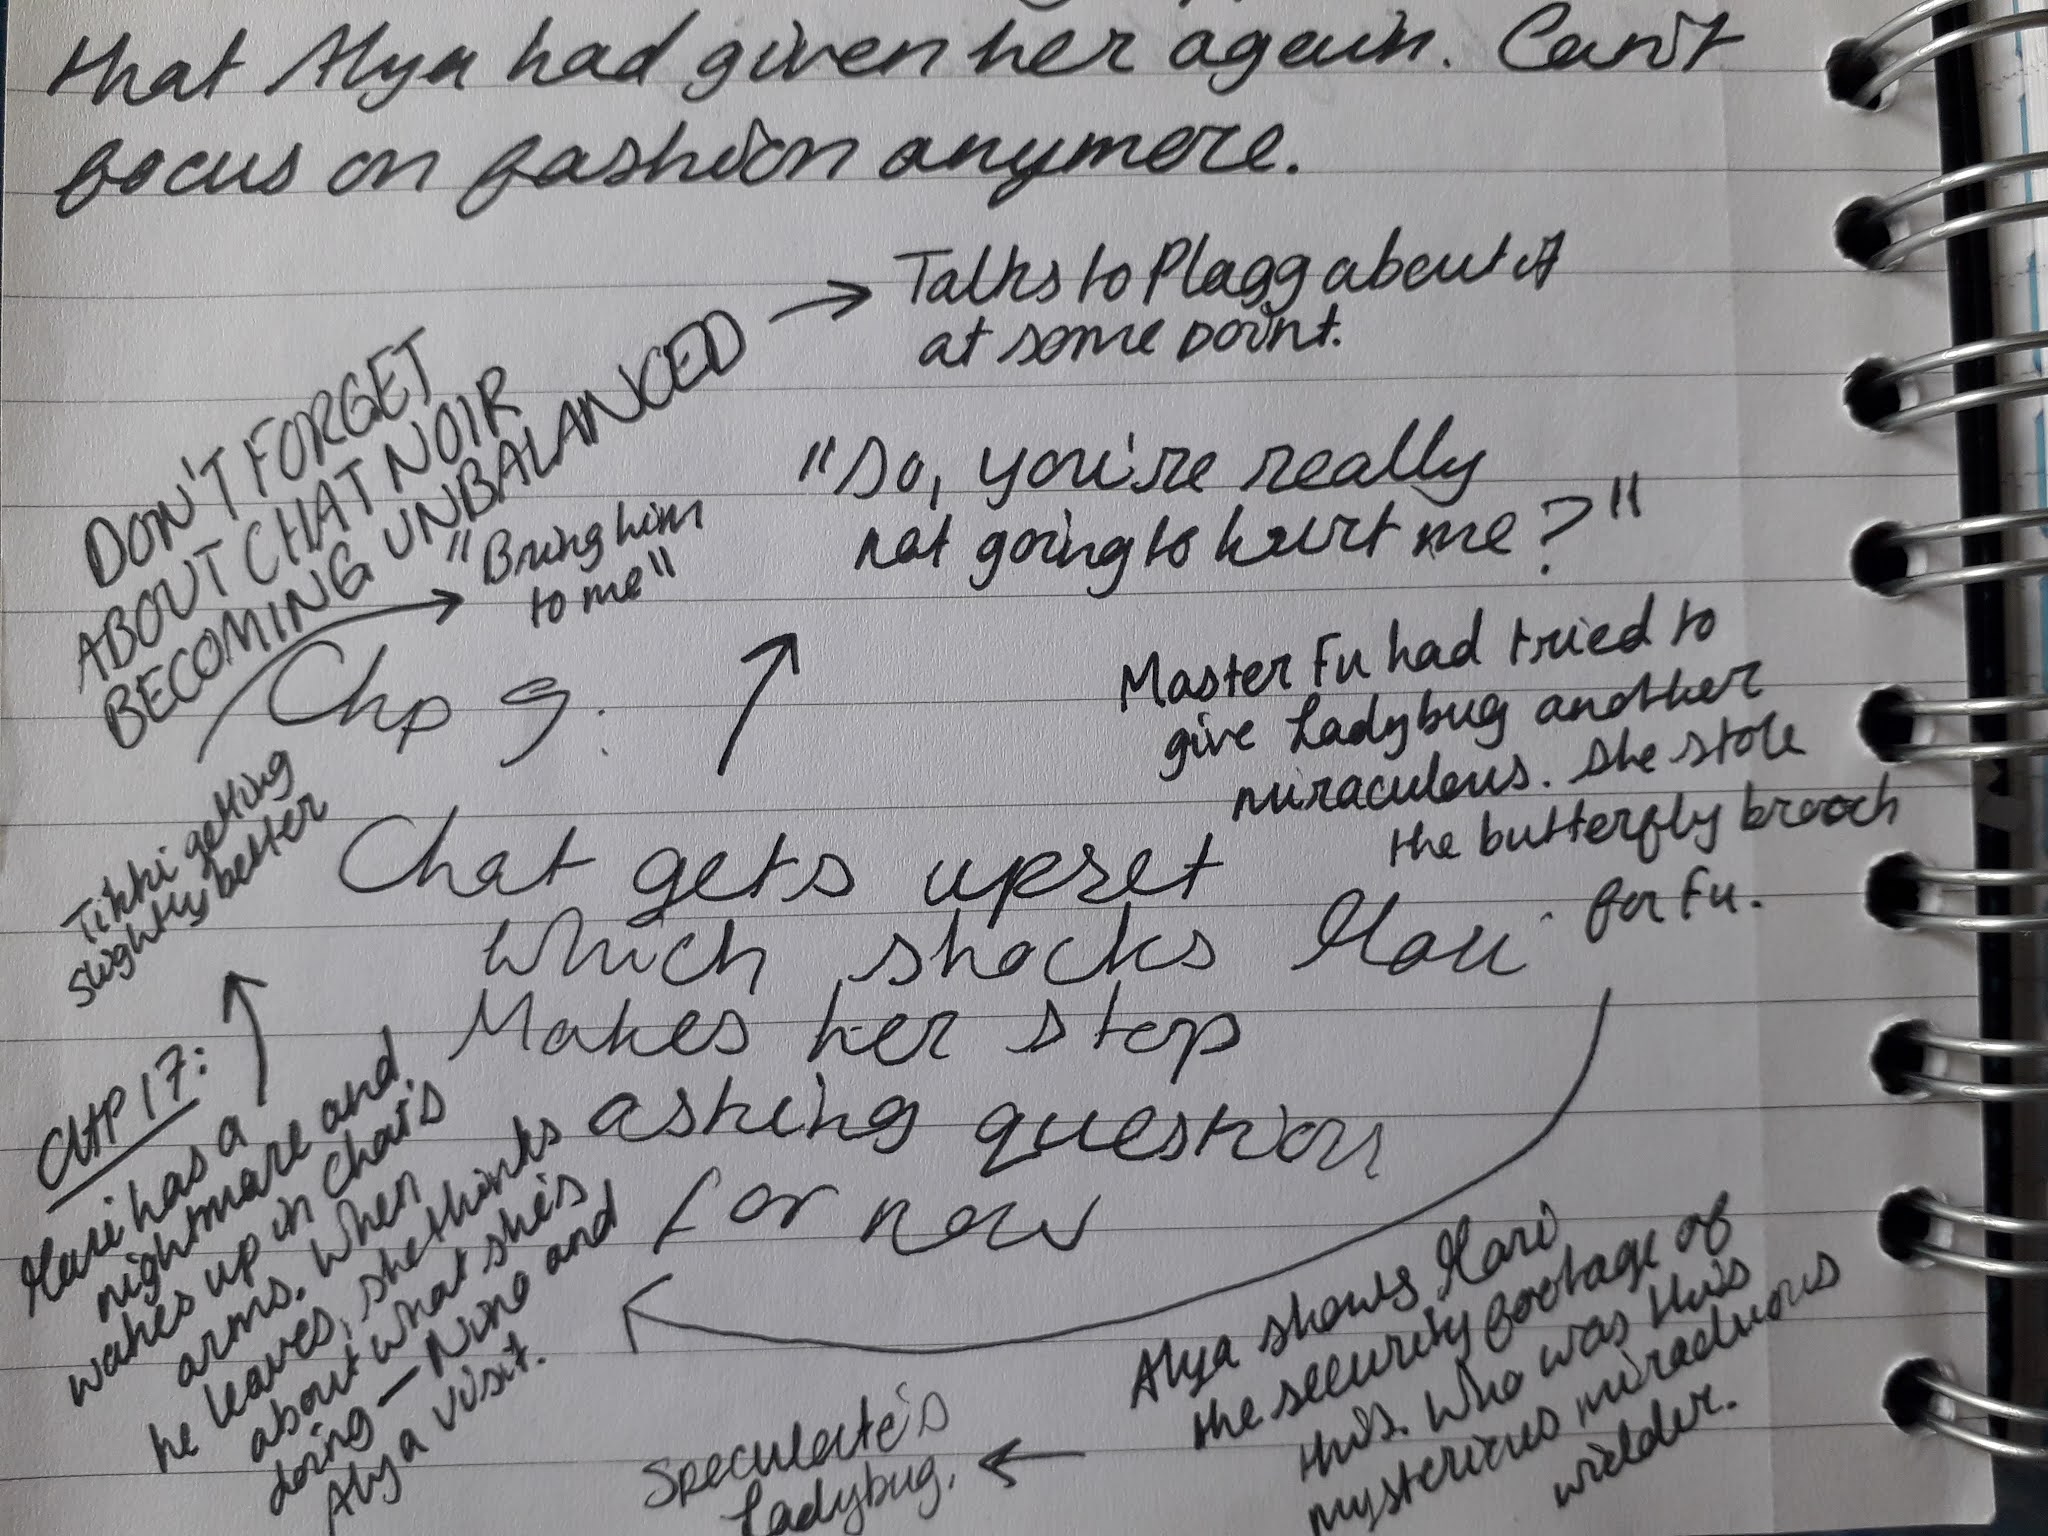 that Alya had given her again. Can't
focus on fashion anymore.
DON'T FORGET
ABOUT CHAT NOIR
BECOMING UNBALANCED
Talks to Plagg about it
at some point.
"So, you're really
not going to hurt me?"
"Bring him
to me"
Chp 9:
Master Fu had tried to
give Ladybug another
miraculous. She stole
the butterfly brooch
for Fu.
Tikki getting
slightly better
Chat gets upset
which shocks Mari
Makes her stop
asking question
for now
CHP 17:
Mari has a
nightmare and
wakes up in Chat's
arms. When
he leaves, she thinks
about what she's
doing — Nino and
Alya visit.
Alya shows Mari
the security footage of
this. Who was this
mysterious miraculous
wielder.
Speculate's
Ladybug.